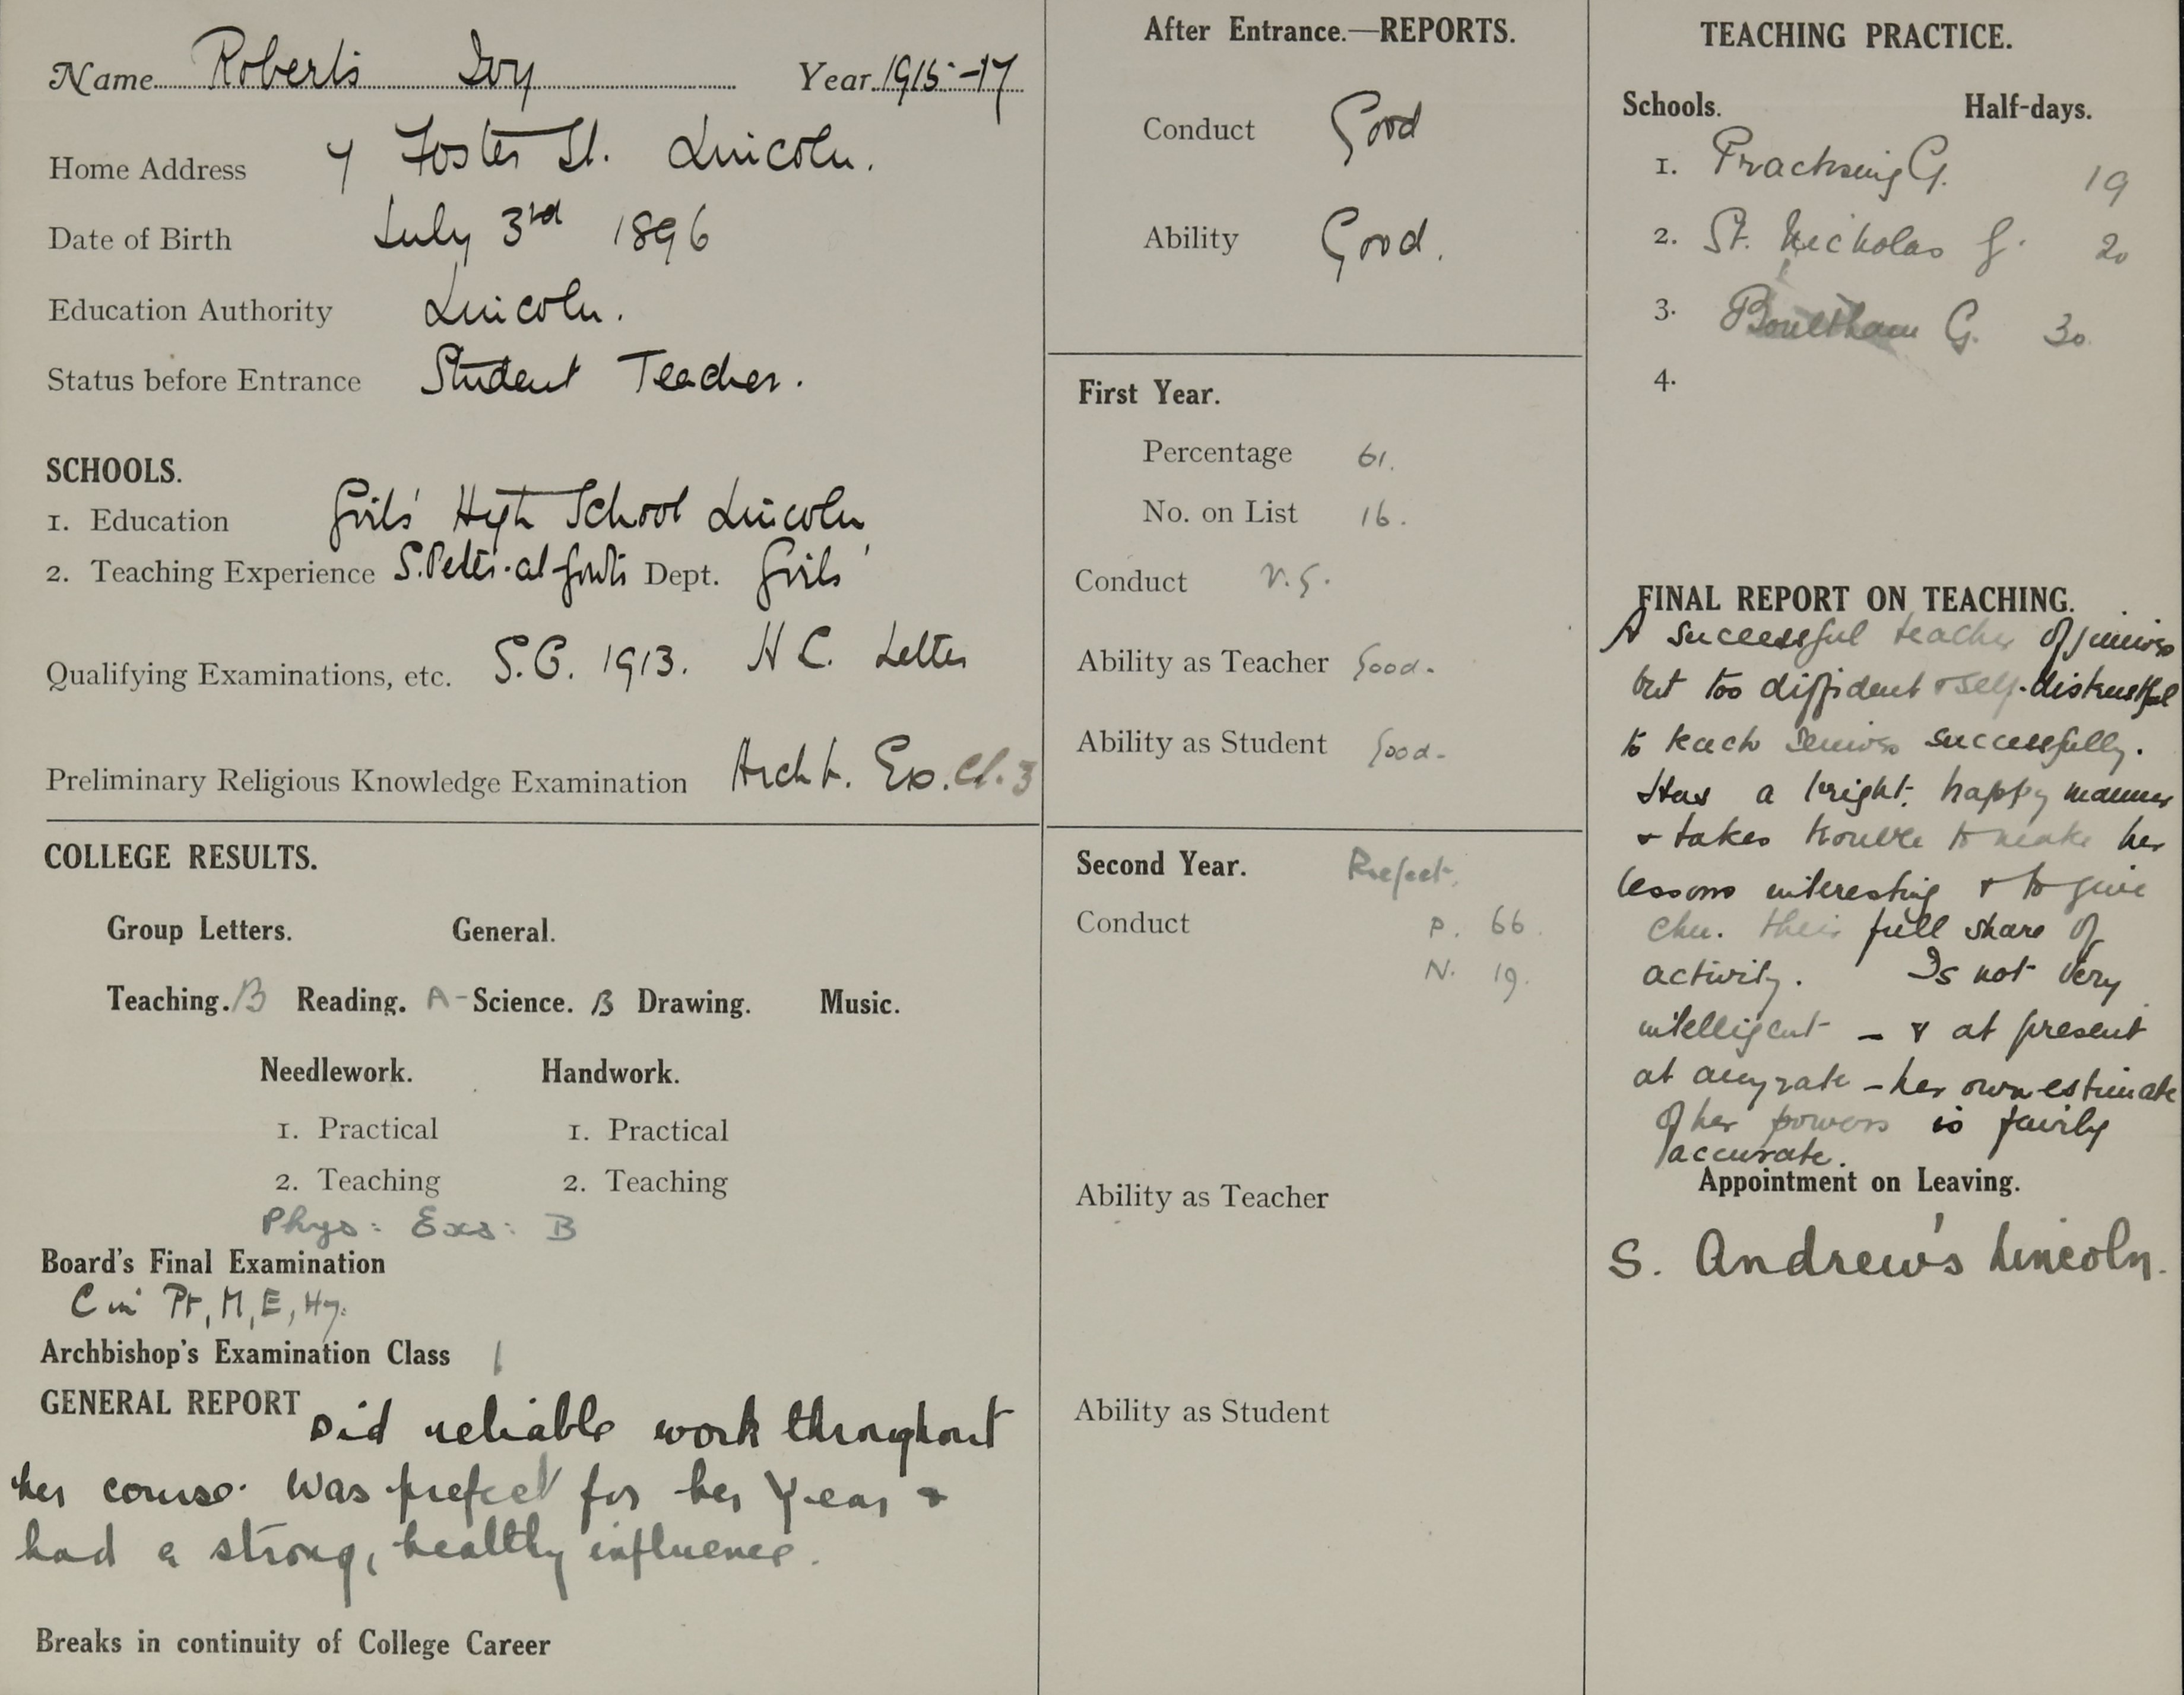 Name Roberts Ivy Year 1915-17
Home Address 7 Foster St. Lincoln.
Date of Birth July 3rd 1896
Education Authority Lincoln.
Status before Entrance Student Teacher.
SCHOOLS.
1. Education Girls' High School Lincoln
2. Teaching Experience S. Peter-at-Gowts Dept. Girls'
Qualifying Examinations, etc. S.C. 1913. H C. Letter
Preliminary Religious Knowledge Examination Archb. Ex. Cl. 3
COLLEGE RESULTS.
Group Letters. General.
Teaching. B Reading. A- Science. B Drawing. Music.
Needlework. Handwork.
1. Practical 1. Practical
2. Teaching 2. Teaching
Phys: Exs: B
Board's Final Examination
C in Pr, M, E, Hy.
Archbishop's Examination Class 1
GENERAL REPORT Did reliable work throughout
her course. Was prefect for her Year &
had a strong, healthy influence.
Breaks in continuity of College Career
After Entrance.—REPORTS.
Conduct Good
Ability Good.
First Year.
Percentage 61.
No. on List 16.
Conduct V.G.
Ability as Teacher Good.
Ability as Student Good.
Second Year. Prefect.
Conduct P. 66.
N. 19.
Ability as Teacher
Ability as Student
TEACHING PRACTICE.
Schools. Half-days.
1. Practising G. 19
2. St. Nicholas G. 20
3. Boultham G. 30
4.
FINAL REPORT ON TEACHING.
A successful teacher of juniors
but too diffident & self-distrustful
to teach Seniors successfully.
Has a bright, happy manner
& takes trouble to make her
lessons interesting & to give
chn. their full share of
activity. Is not very
intelligent - & at present
at any rate - her own estimate
of her powers is fairly
accurate.
Appointment on Leaving.
S. Andrew's Lincoln.